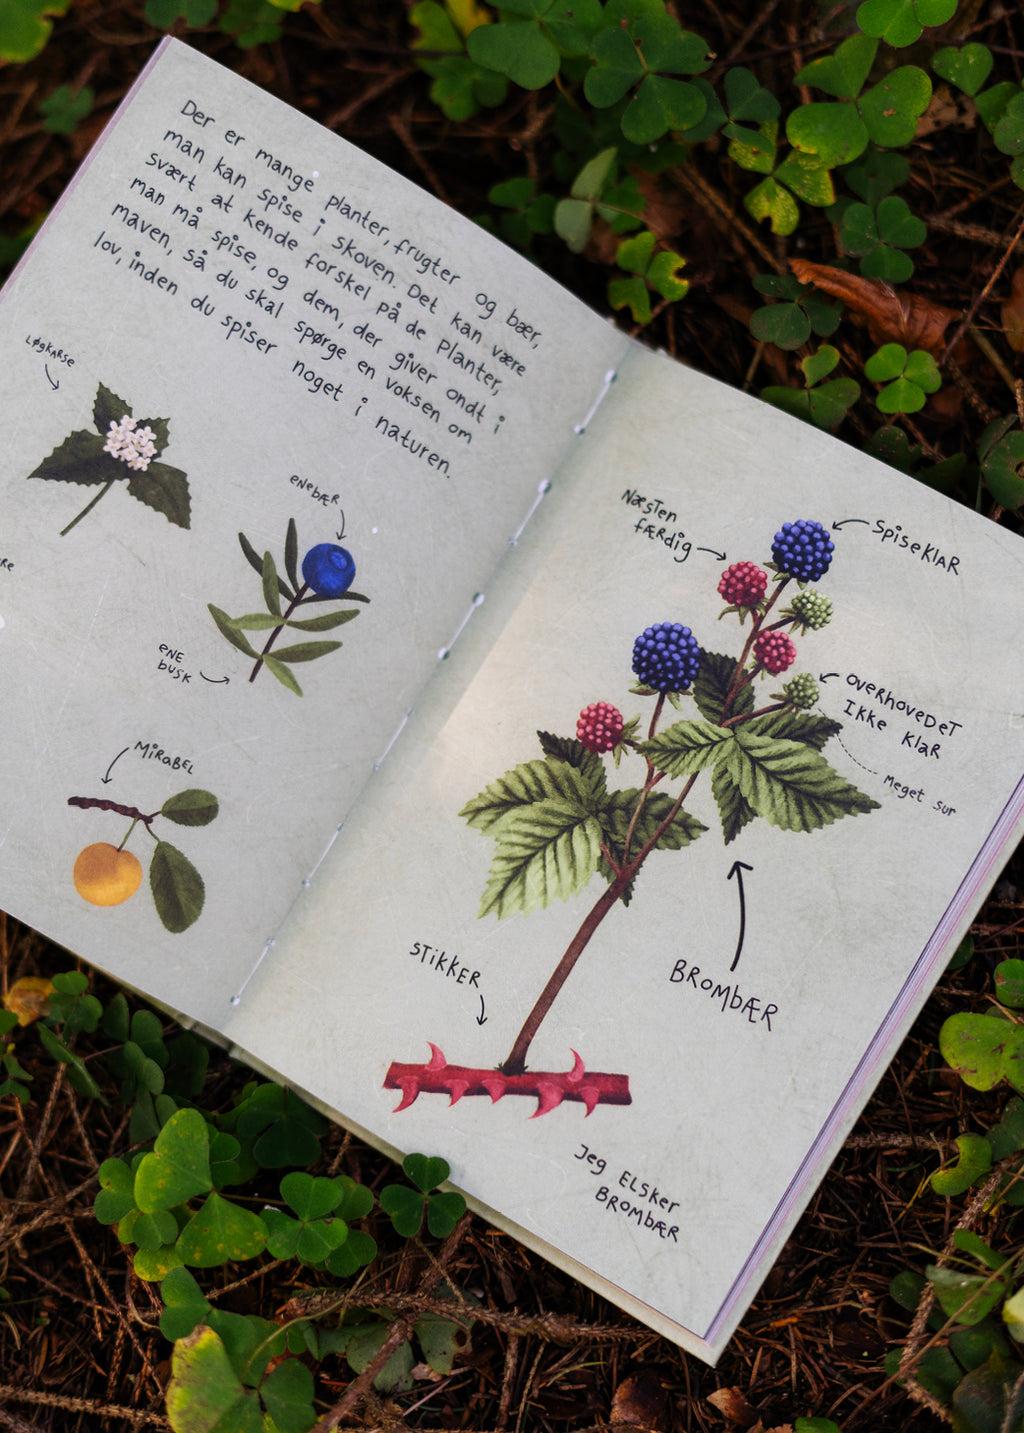 Der er mange planter, frugter og bær,
man kan spise i skoven. Det kan være
svært at kende forskel på de planter,
man må spise, og dem, der giver ondt i
maven, så du skal spørge en voksen om
lov, inden du spiser noget i naturen.
LØGKARSE
ENEBÆR
ENE
BUSK
MIRABEL
NÆSTEN
FÆRDIG
SPISEKLAR
OVERHOVEDET
IKKE KLAR
MEGET SUR
BROMBÆR
STIKKER
Jeg ELSker
BROMBÆR